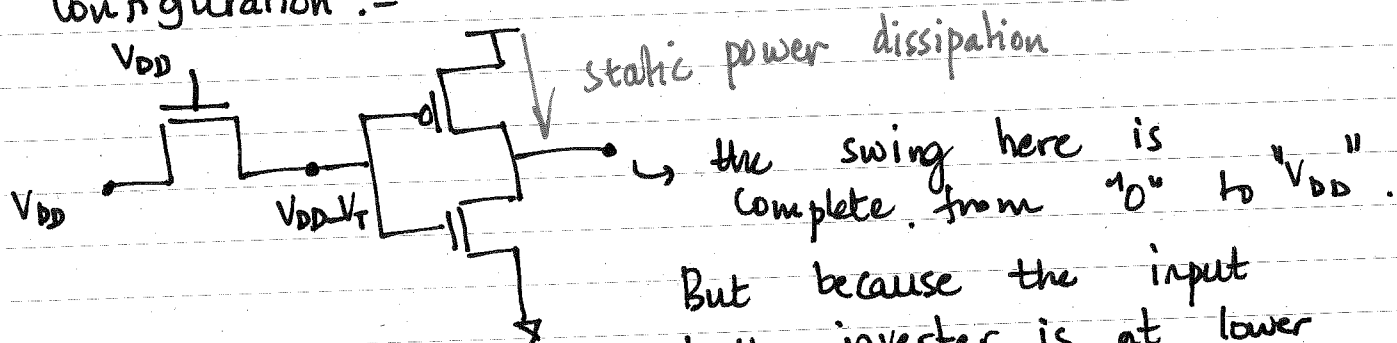 Configuration :-
VDD
static power dissipation
VDD
VDD-VT
↳ the swing here is
complete. from "0" to "VDD".
But because the input
inverter is at lower